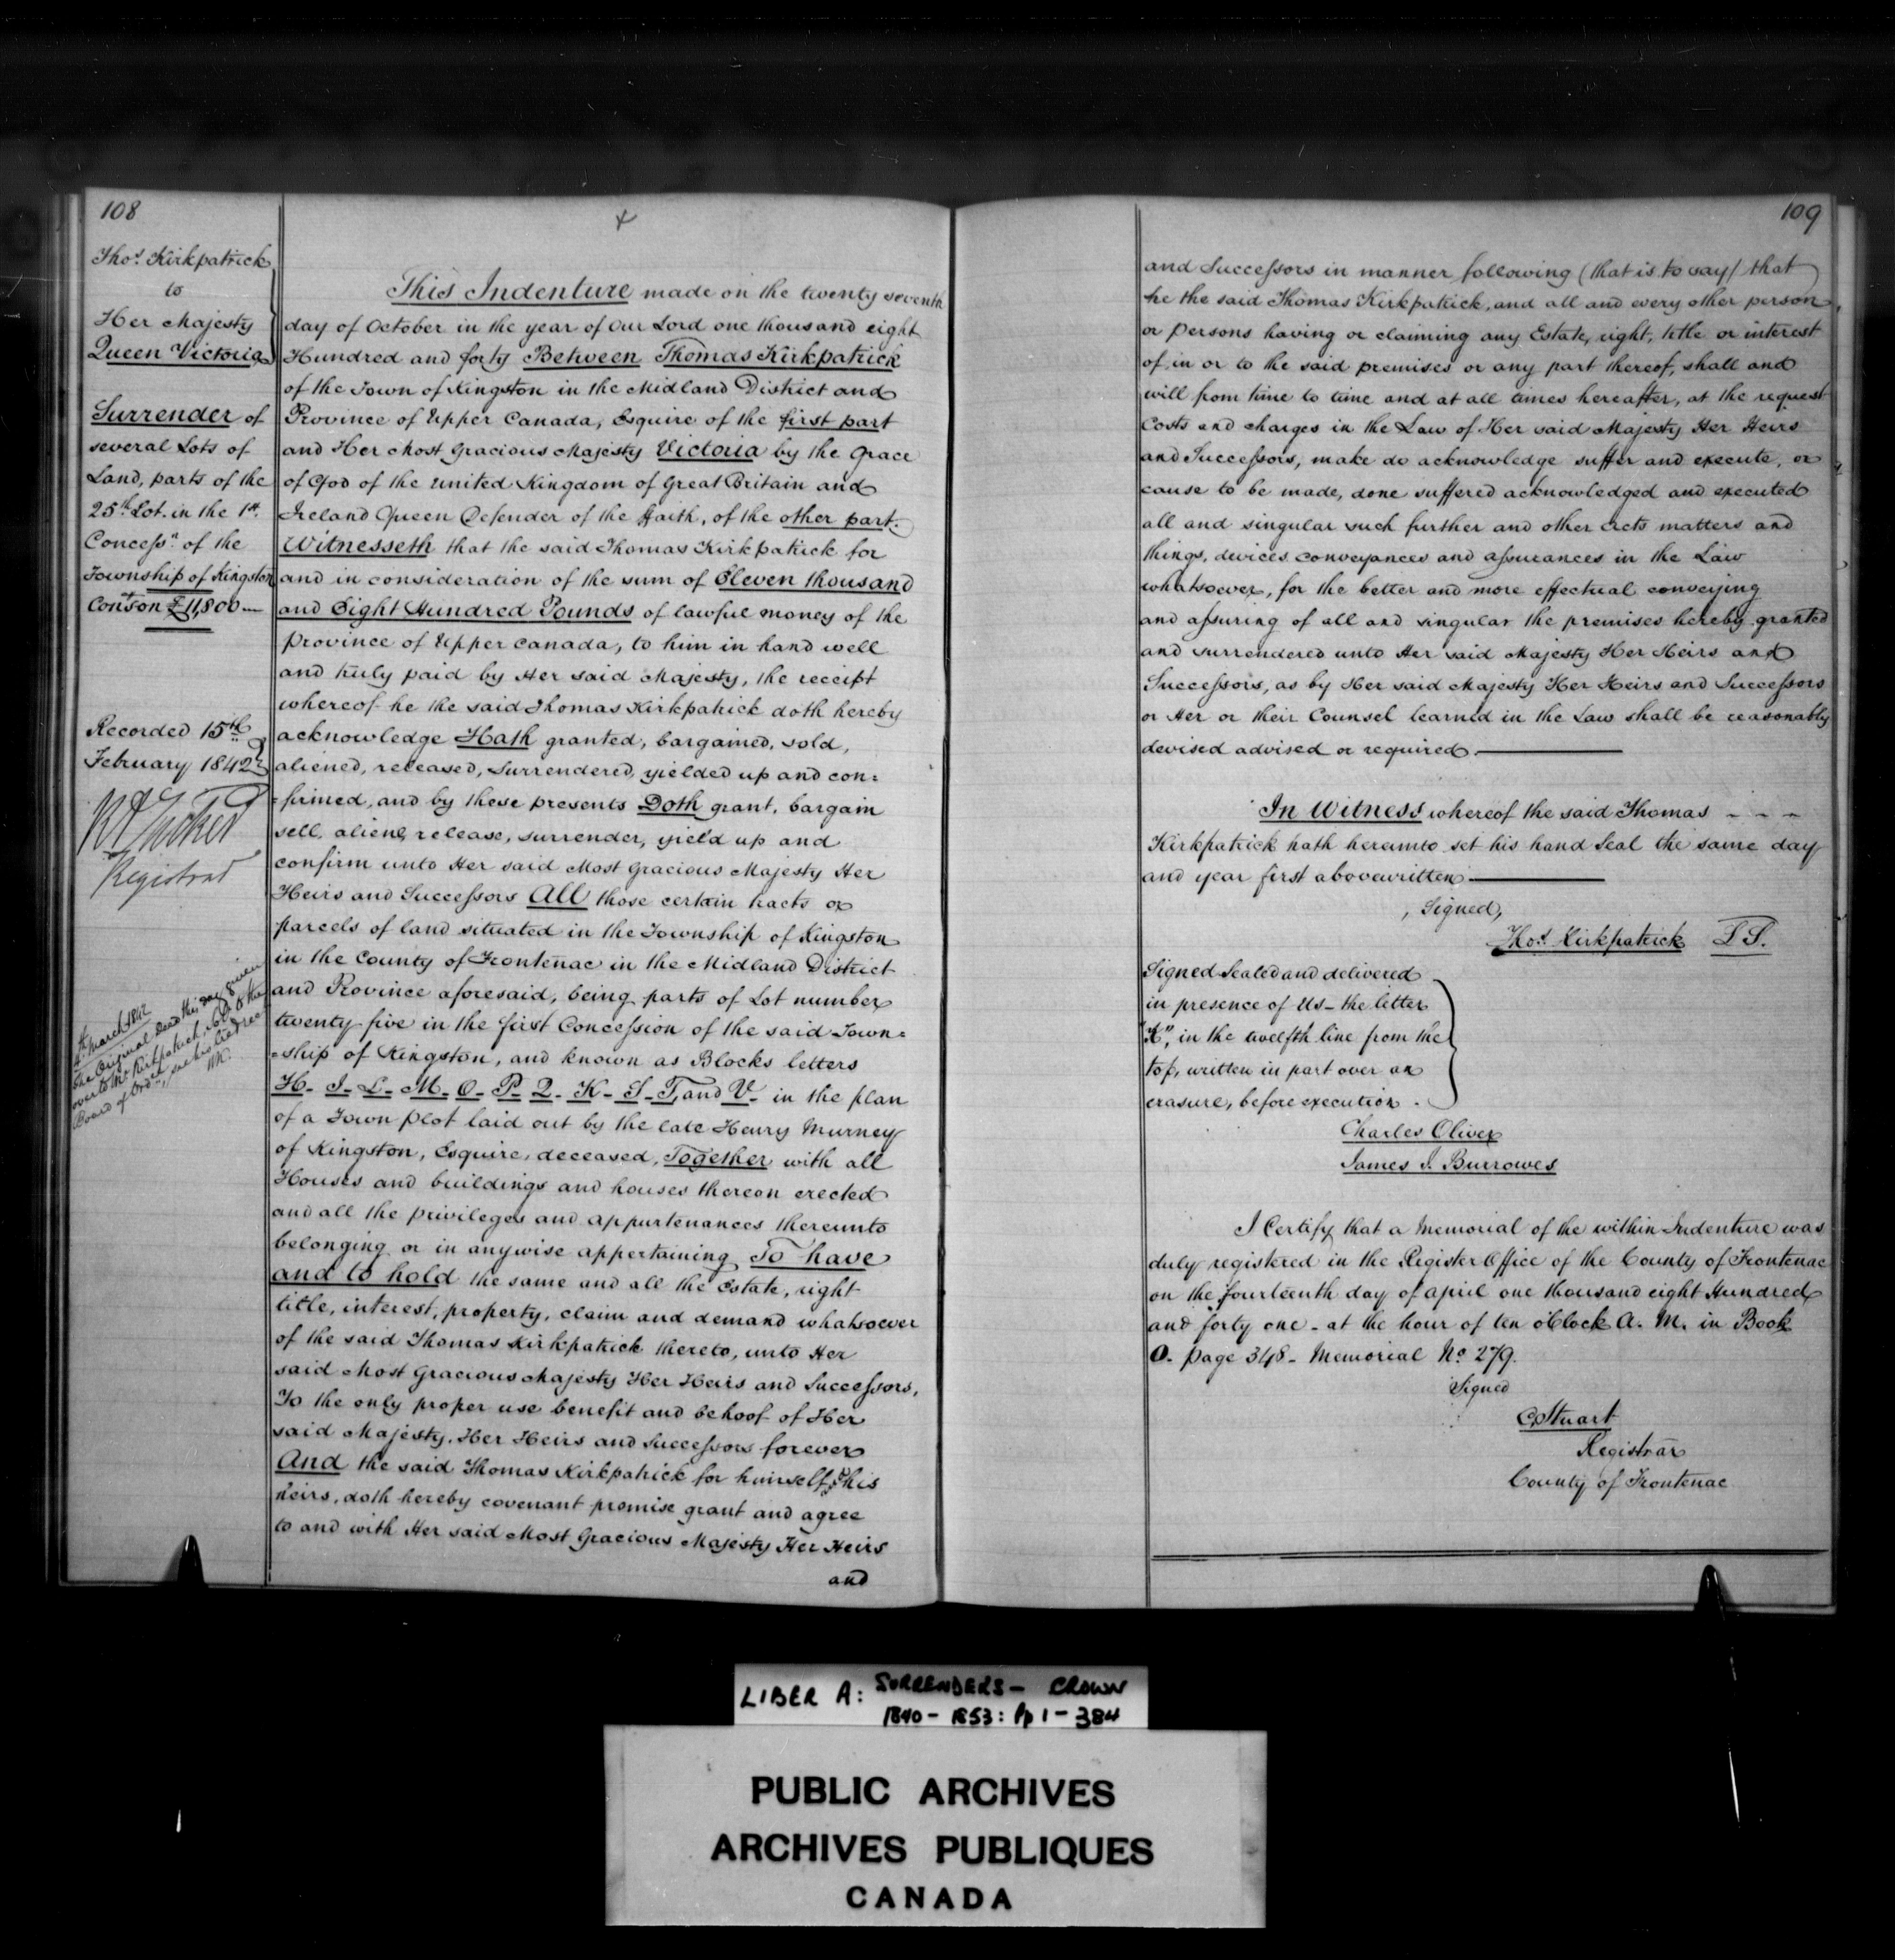 108
Thos. Kirkpatrick
to
Her Majesty
Queen Victoria
Surrender of
several Lots of
Land, parts of the
25th Lot. in the 1st.
Concessn. of the
Township of Kingston
Conson £11,800 —
Recorded 15th
February 1842
R A Tucker
Registrar
4th March 1842
The Original Deed this day given
over to Mr Kirkpatrick, Solr to the
Board of Ordce, see his lied rec
This Indenture made on the twenty seventh
day of October in the year of Our Lord one thousand eight
Hundred and forty Between Thomas Kirkpatrick
of the Town of Kingston in the Midland District and
Province of Upper Canada, Esquire of the first part
and Her Most Gracious Majesty Victoria by the Grace
of God of the United Kingdom of Great Britain and
Ireland Queen Defender of the Faith, of the other part.
Witnesseth that the said Thomas Kirkpatrick for
and in consideration of the sum of Eleven thousand
and Eight Hundred Pounds of lawful money of the
Province of Upper Canada, to him in hand well
and truly paid by Her said Majesty, the receipt
whereof he the said Thomas Kirkpatrick doth hereby
acknowledge Hath granted, bargained, sold,
aliened, released, surrendered, yielded up and con=
=firmed, and by these presents Doth grant, bargain
sell, aliene, release, surrender, yield up and
confirm unto Her said Most Gracious Majesty Her
Heirs and Successors All those certain tracts or
parcels of land situated in the Township of Kingston
in the County of Frontenac in the Midland District
and Province aforesaid, being parts of Lot number
twenty-five in the first Concession of the said Town=
=ship of Kingston, and known as Blocks letters
H- I- L- M- O- P- Q- K- S- T, and V- in the plan
of a Town Plot laid out by the late Henry Murney
of Kingston, Esquire, deceased, Together with all
Houses and buildings and houses thereon erected
and all the privileges and appurtenances thereunto
belonging or in anywise appertaining To have
and to hold the same and all the Estate, right
title, interest, property, claim and demand whatsoever
of the said Thomas Kirkpatrick thereto, unto Her
said Most Gracious Majesty Her Heirs and Successors,
To the only proper use benefit and behoof of Her
said Majesty, Her Heirs and Successors forever
And the said Thomas Kirkpatrick for himself & his
heirs, doth hereby covenant promise grant and agree
to and with Her said Most Gracious Majesty Her Heirs
and
109
and Successors in manner following (that is to say) that
he the said Thomas Kirkpatrick, and all and every other person
or persons having or claiming any Estate, right, title or interest
of, in or to the said premises or any part thereof, shall and
will from time to time and at all times hereafter, at the request
Costs and charges in the Law of Her said Majesty Her Heirs
and Successors, make do acknowledge suffer and execute, or
cause to be made, done suffered acknowledged and executed
all and singular such further and other acts matters and
things, devices conveyances and assurances in the Law
whatsoever, for the better and more effectual conveying
and assuring of all and singular the premises hereby granted
and surrendered unto Her said Majesty Her Heirs and
Successors, as by Her said Majesty Her Heirs and Successors
or Her or their Counsel learned in the Law shall be reasonably
devised advised or required.
In Witness whereof the said Thomas - - -
Kirkpatrick hath hereunto set his hand Seal the same day
and year first abovewritten
Signed,
Thos. Kirkpatrick L S.
Signed Sealed and delivered
in presence of Us - the letter
"K", in the twelfth line from the
top, written in part over an
erasure, before execution.
Charles Oliver
James S. Burrowes
I Certify that a Memorial of the within Indenture was
duly registered in the Register Office of the County of Frontenac
on the fourteenth day of April one thousand eight Hundred
and forty one - at the hour of ten oClock A. M. in Book
O. page 348 - Memorial No. 279.
Signed
C Stuart
Registrar
County of Frontenac
LIBER A: SURRENDERS - CROWN
1840 - 1853: Pp 1 - 384
PUBLIC ARCHIVES
ARCHIVES PUBLIQUES
CANADA